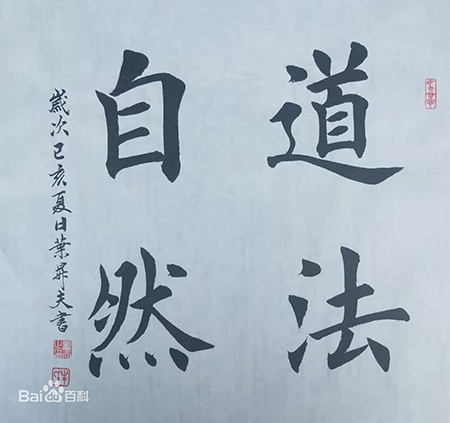 道法
自然
歲次己亥夏日葉昇夫書
Bai百科